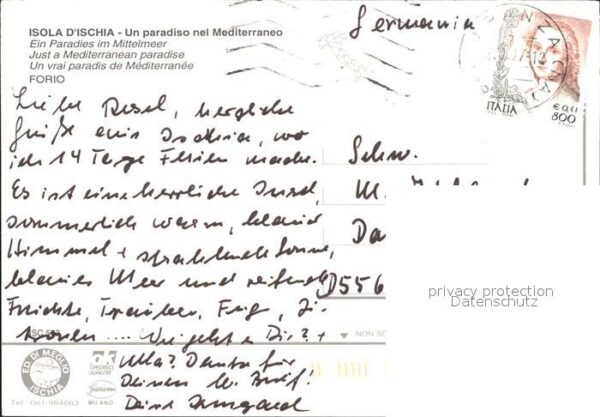 ISOLA D'ISCHIA - Un paradiso nel Mediterraneo
Ein Paradies im Mittelmeer
Just a Mediterranean paradise
Un vrai paradis de Méditerranée
FORIO
Germania
ITALIA
€ 0,41
800
Liebe Rosel, herzliche
Grüße aus Ischia, wo
ich 14 Tage Ferien mache.
Es ist eine herrliche Insel,
sommerlich warm, blauer
Himmel + strahlende Sonne,
blaues Meer und reifende
Früchte, Trauben, Feig, Zi-
tronen .... Wie geht es Dir? +
Ulla? Danke für
Deinen lb. Brief!
Deine Irmgard
Schw.
M.
Da
D556
privacy protection
Datenschutz
NON SC
ED. DI MEGLIO
ISCHIA
Tel. 081-984663
ok
MILANO